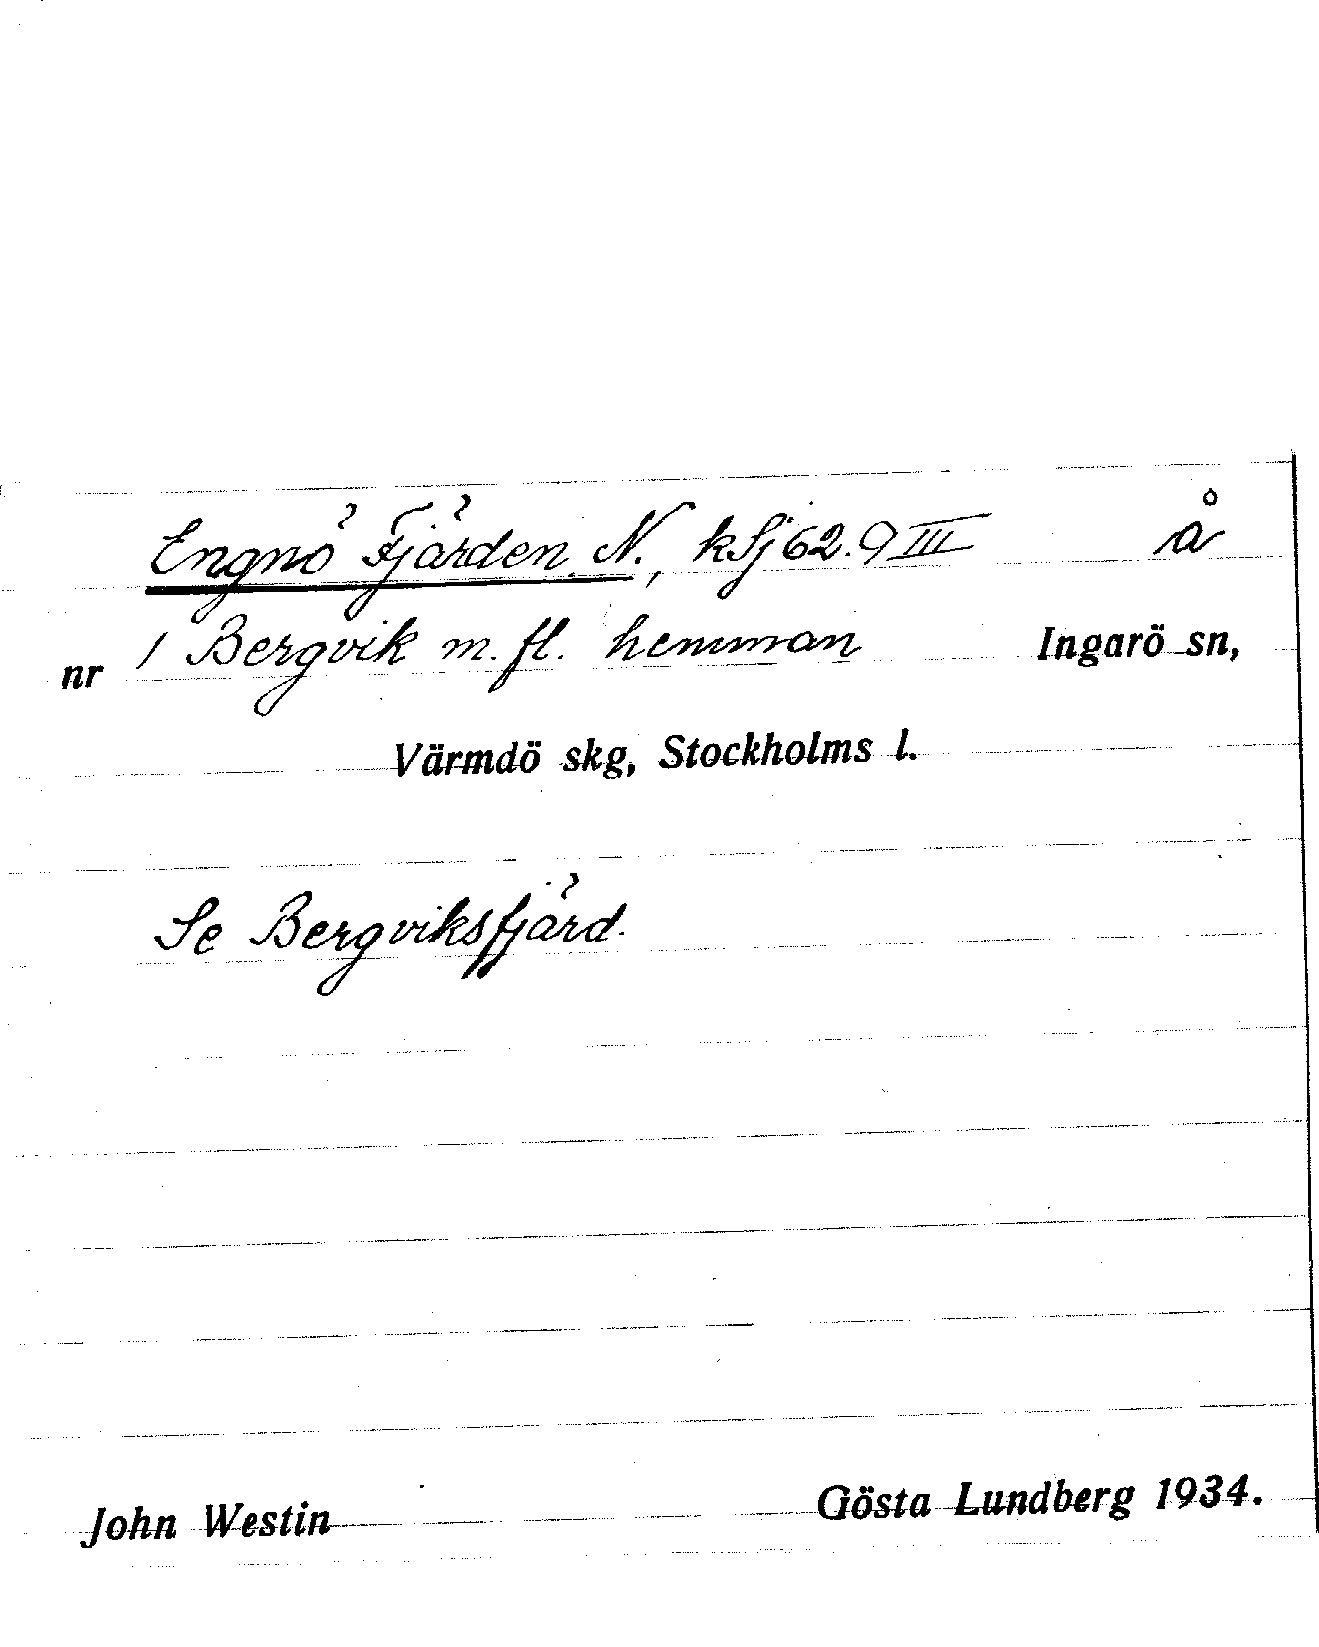 Engnö Fjärden N., kfj 62.9 III å
nr 1 Bergvik m. fl. hemman Ingarö sn,
Värmdö skg, Stockholms l.
Se Bergviksfjärd.
John Westin Gösta Lundberg 1934.